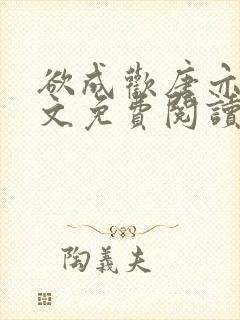 欲成歡唐亦
文免費閱讀
陶義夫